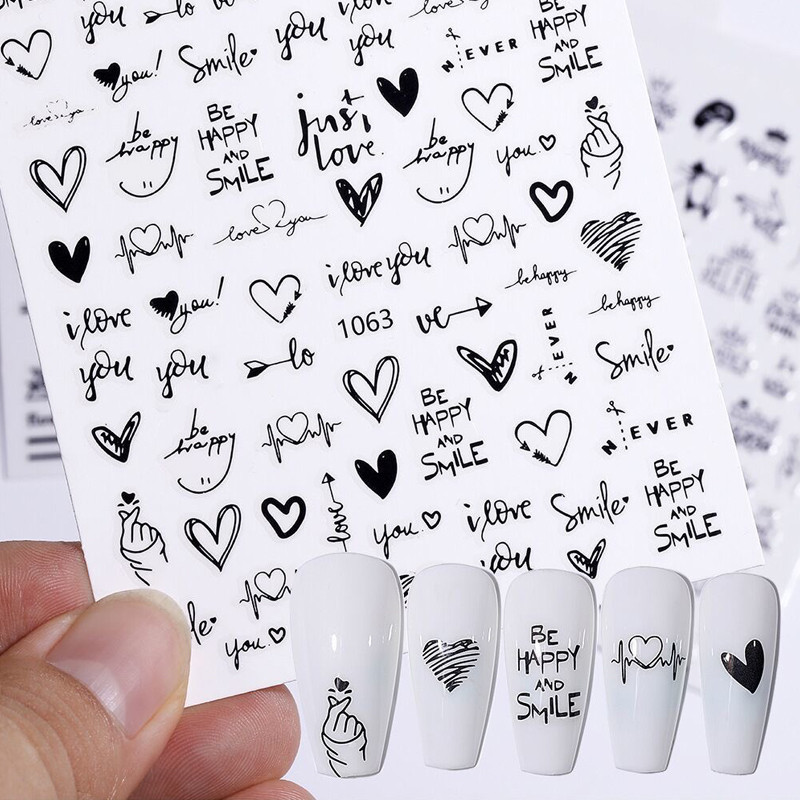 you
lo
ve
you
i love
you
love you
BE
HAPPY
AND
SMILE
you!
Smile
NEVER
love you
be
happy
BE
HAPPY
AND
SMILE
just
love.
be
happy
you
love you
i love you
be happy
i love
you!
1063
ve
NEVER
be happy
you
you
lo
Smile
be
happy
BE
HAPPY
AND
SMILE
NEVER
love
you
i love
Smile
BE
HAPPY
AND
SMILE
you
le
you
BE
HAPPY
AND
SMILE
SELFIE